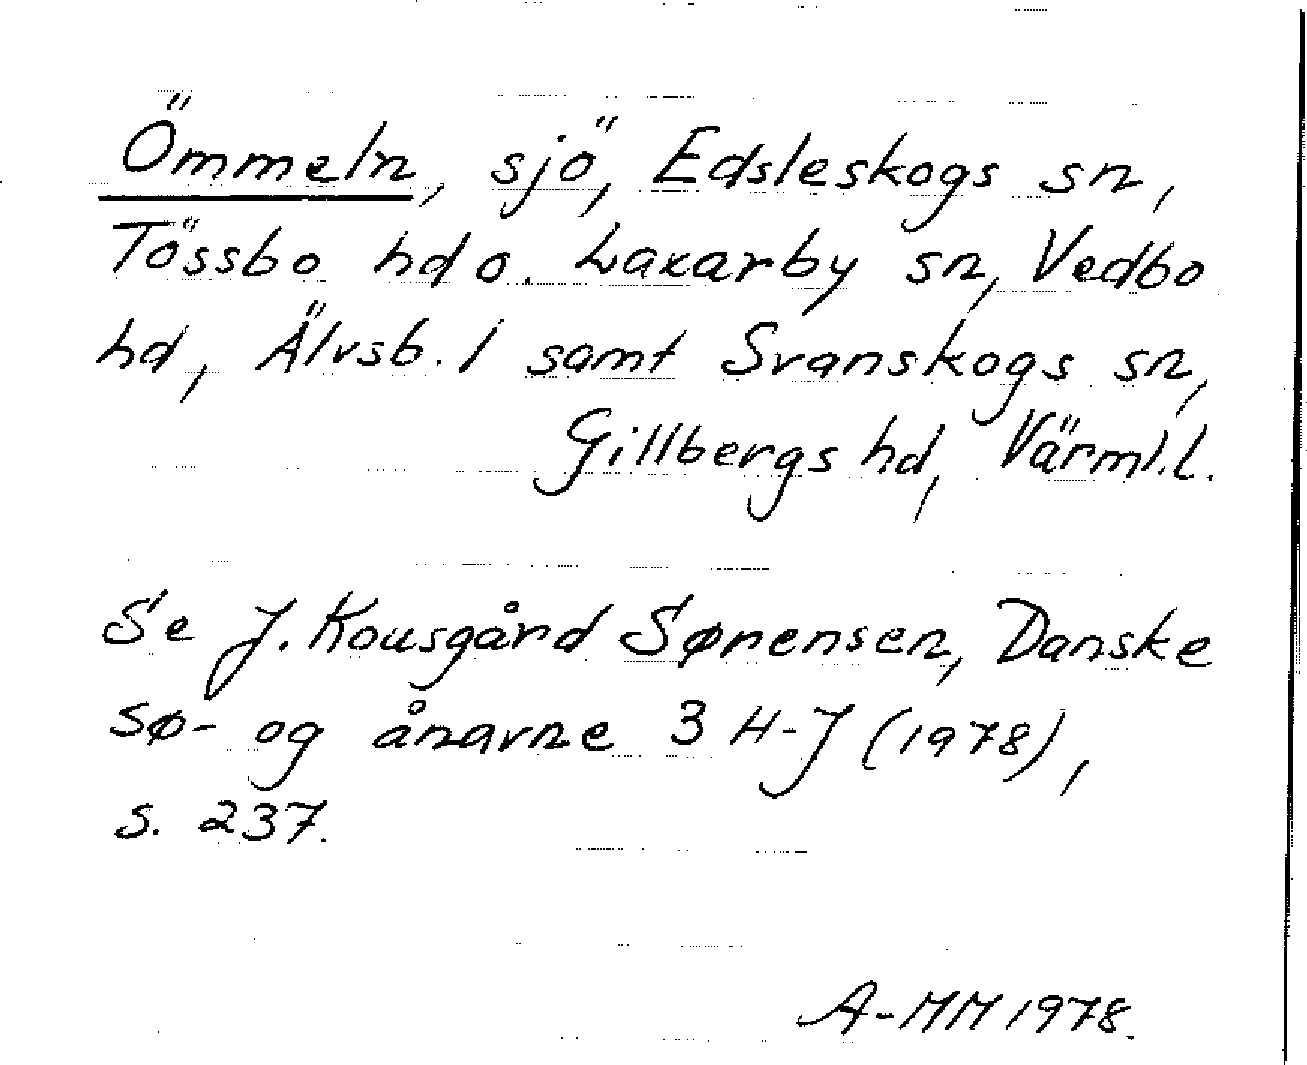 Ömmeln, sjö, Edsleskogs sn,
Tössbo hd o. Laxarby sn, Vedbo
hd, Älvsb. l samt Svanskogs sn,
Gillbergs hd, Värml. l.
Se J. Kousgård Sørensen, Danske
sø- og ånavne 3 H-J (1978),
s. 237.
A-MM 1978.